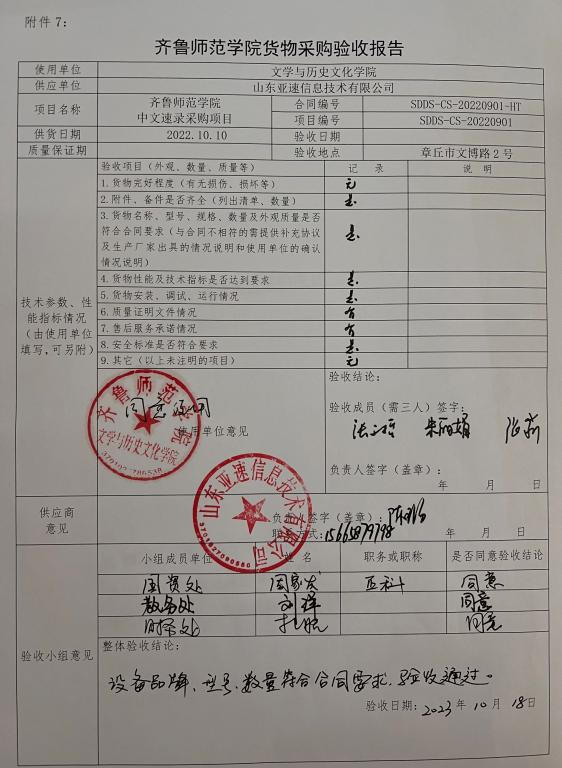 附件 7:
齐鲁师范学院货物采购验收报告
使用单位 文学与历史文化学院
供应单位 山东亚速信息技术有限公司
项目名称 齐鲁师范学院 中文速录采购项目 合同编号 SDDS-CS-20220901-HT
项目编号 SDDS-CS-20220901
供货日期 2022.10.10 验收日期
质量保证期 验收地点 章丘市文博路2号
技术参数、性能指标情况（由使用单位填写,可另附）
验收项目（外观、数量、质量等） 记 录 说 明
1.货物完好程度（有无损伤、损坏等） 无
2.附件、备件是否齐全（列出清单、数量） 是.
3.货物名称、型号、规格、数量及外观质量是否
符合合同要求（与合同不相符的需提供补充协议 是.
及生产厂家出具的情况说明和使用单位的确认
情况说明）
4.货物性能及技术指标是否达到要求 是.
5.货物安装、调试、运行情况 是.
6.质量证明文件情况 有
7.售后服务承诺情况 有
8.安全标准是否符合要求 是.
9.其它（以上未注明的项目） 无
验收结论:
齐鲁师范学院
文学与历史文化学院
同意
使用单位意见
验收成员（需三人）签字:
朱丽娟
负责人签字（盖章）:
年 月 日
供应商
意见
山东亚速信息技术有限公司
负责人签字（盖章）:
联系方式:15665879798 年 月 日
验收小组意见
小组成员单位 姓 名 职务或职称 是否同意验收结论
国资处 同意
教务处 同意
财务处 同意
整体验收结论:
设备品牌、型号、数量符合合同要求,验收通过。
验收日期: 2023年 10月 18日